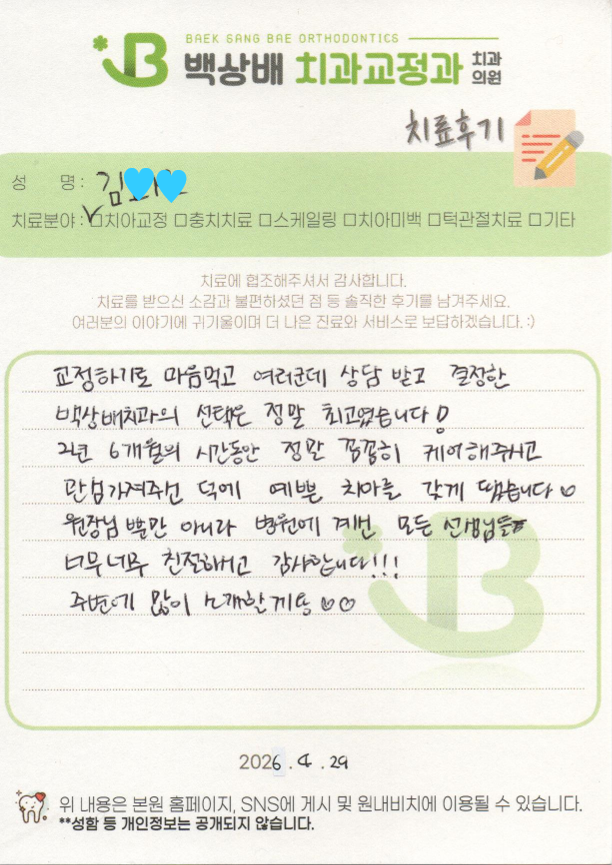 BAEK SANG BAE ORTHODONTICS
B 백상배 치과교정과 치과의원
치료후기
성 명 : 김
치료분야 : ☑치아교정 □충치치료 □스케일링 □치아미백 □턱관절치료 □기타
치료에 협조해주셔서 감사합니다.
치료를 받으신 소감과 불편하셨던 점 등 솔직한 후기를 남겨주세요.
여러분의 이야기에 귀기울이며 더 나은 진료와 서비스로 보답하겠습니다. :)
교정하기로 마음먹고 여러군데 상담 받고 결정한
백상배치과의 선택은 정말 최고였습니다!
2년 6개월의 시간동안 정말 꼼꼼히 케어해주시고
관심가져주신 덕에 예쁜 치아를 갖게 됐습니다♡
원장님 뿐만 아니라 병원에 계신 모든 선생님들
너무너무 친절하시고 감사합니다!!!
주변에 많이 소개할게용 ♡♡
B
2026 . 4 . 29
위 내용은 본원 홈페이지, SNS에 게시 및 원내비치에 이용될 수 있습니다.
**성함 등 개인정보는 공개되지 않습니다.